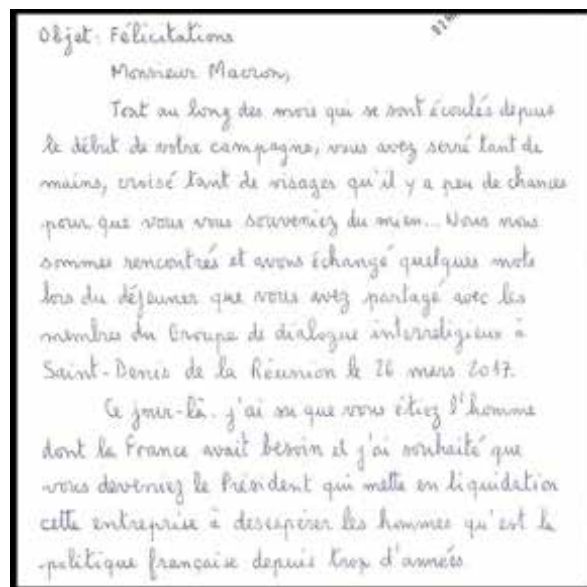 Objet: Félicitations
Monsieur Macron,
Tout au long des mois qui se sont écoulés depuis
le début de votre campagne, vous avez serré tant de
mains, croisé tant de visages qu'il y a peu de chances
pour que vous vous souveniez du mien... Nous nous
sommes rencontrés et avons échangé quelques mots
lors du déjeuner que vous avez partagé avec les
membres du Groupe de dialogue interreligieux à
Saint-Denis de la Réunion le 26 mars 2017.
Ce jour-là, j'ai su que vous étiez l'homme
dont la France avait besoin et j'ai souhaité que
vous deveniez le Président qui mette en liquidation
cette entreprise à désespérer les hommes qu'est la
politique française depuis trop d'années.